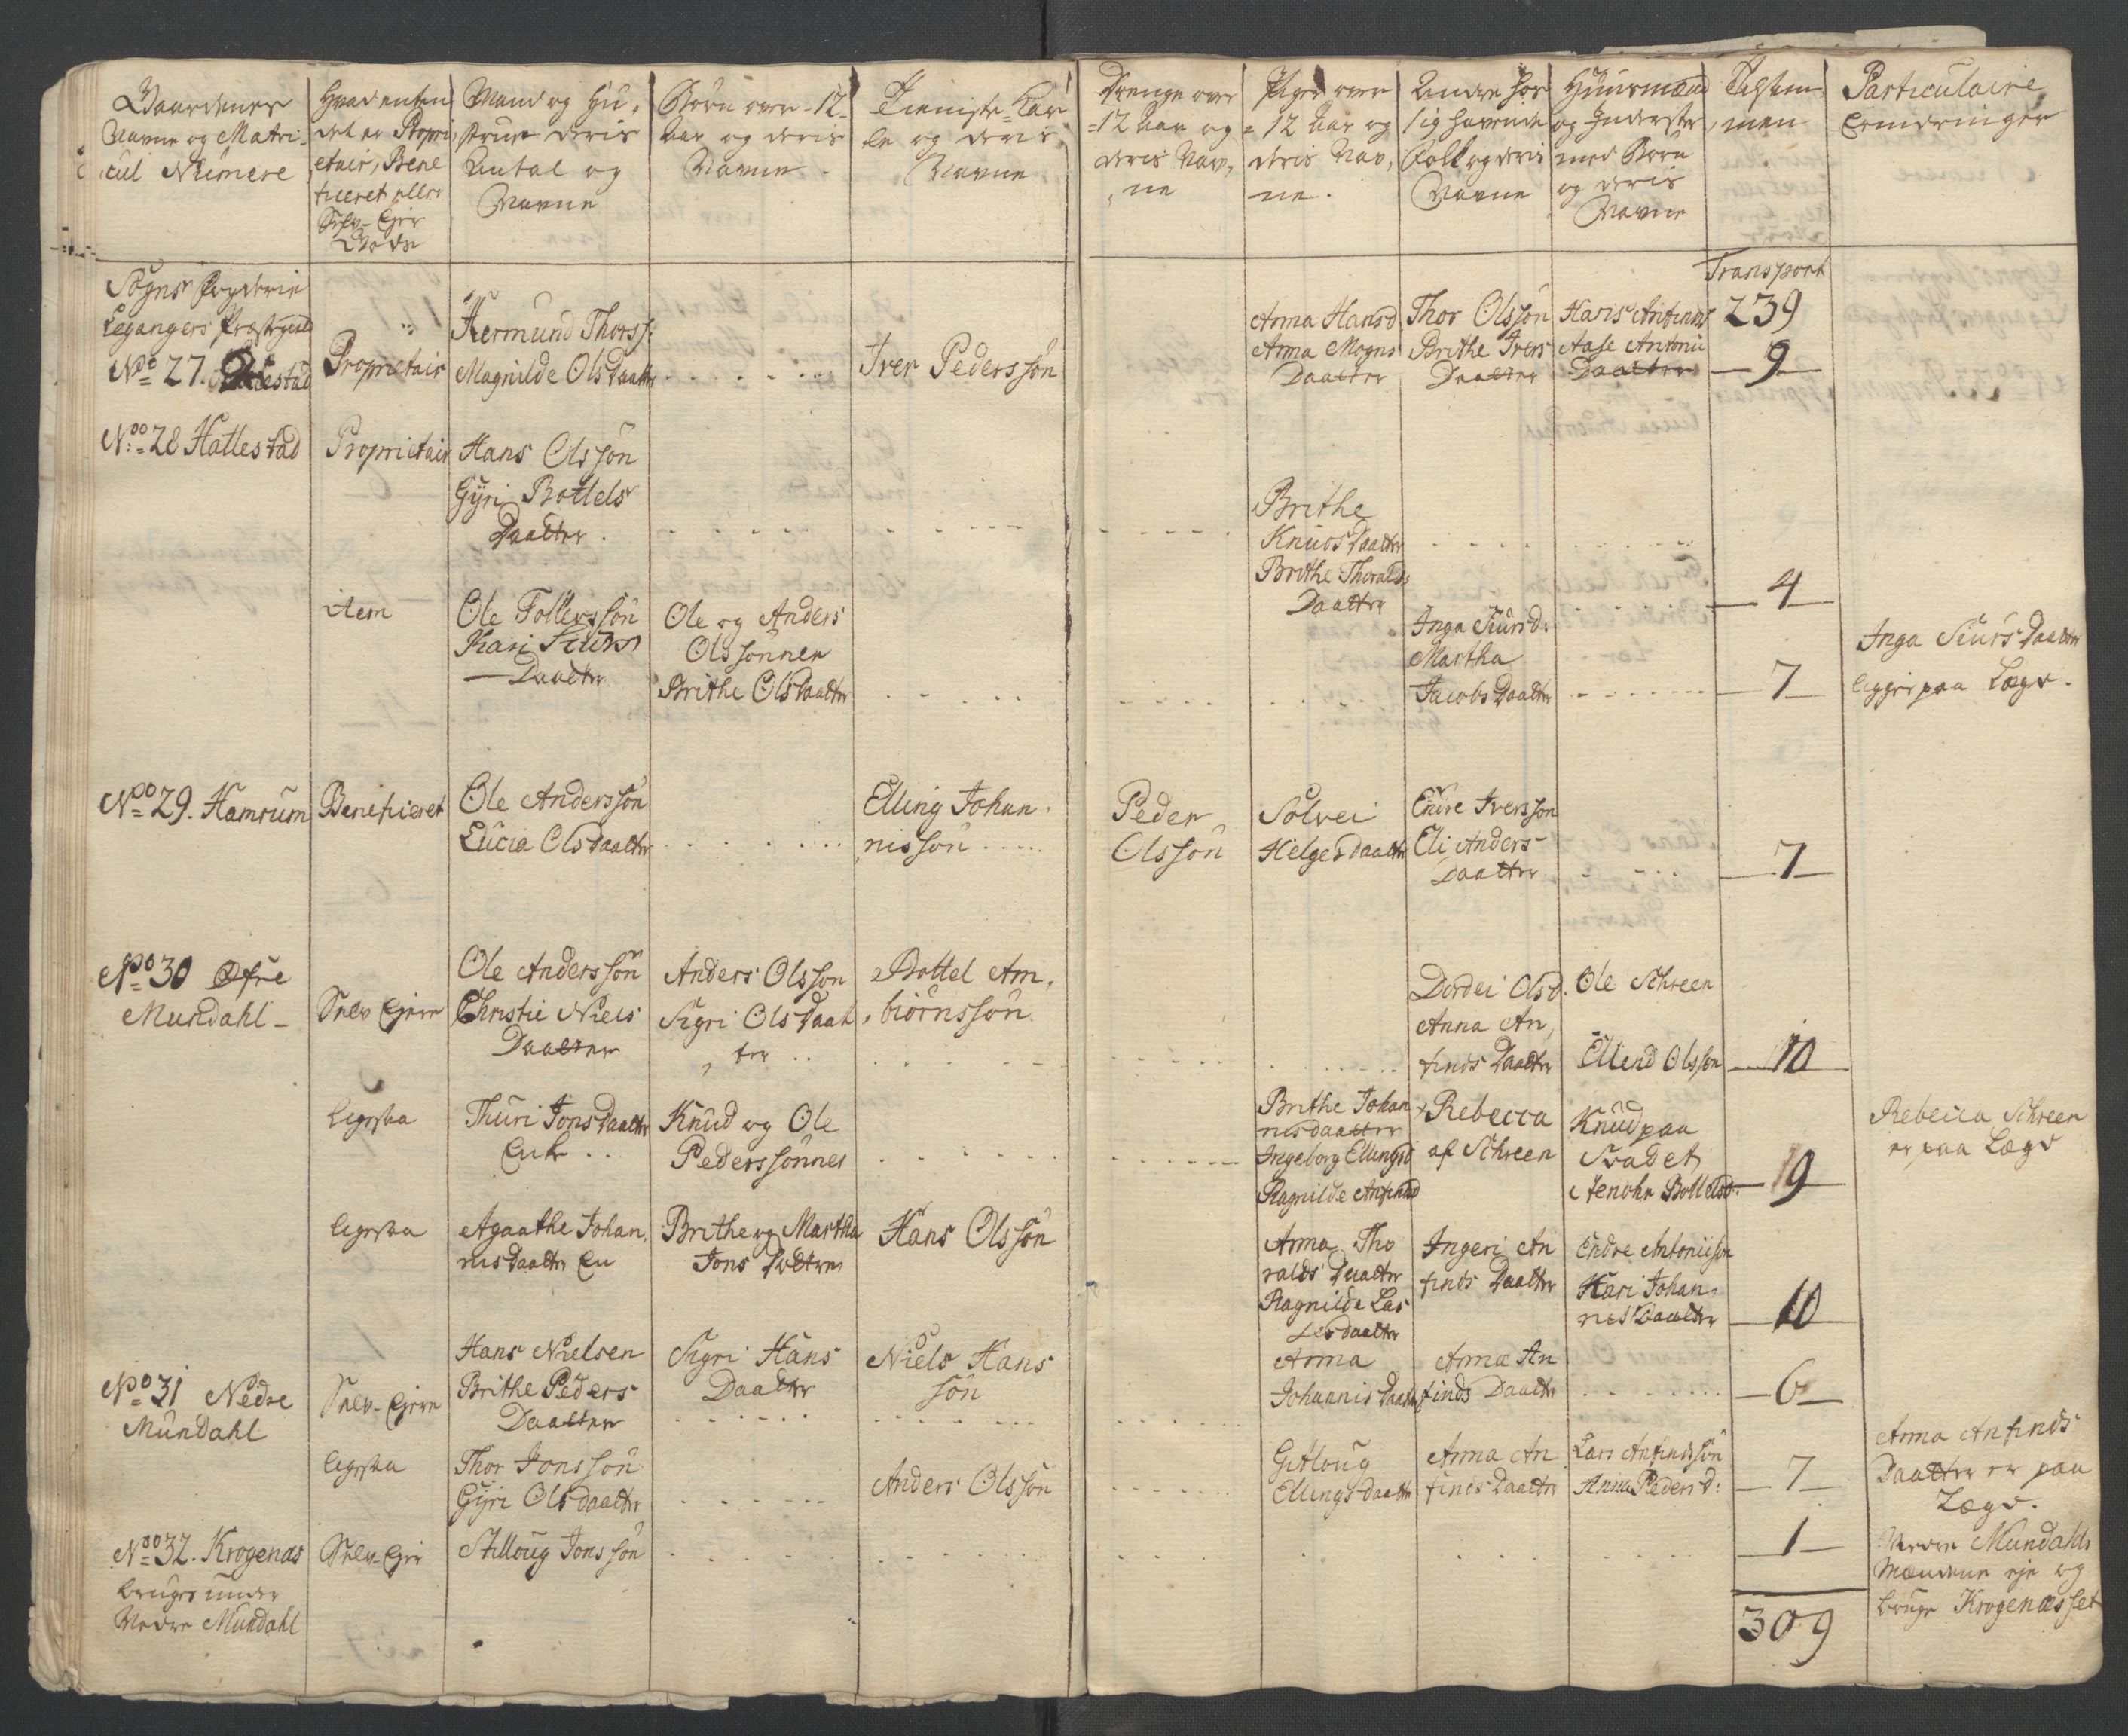 Gaardenes
Navne og Matri-
cul Numere
Hvad enten
det er Propri
etair, Bene
ficeret eller
Selv-Ejer
Gods
Mand og Hu-
strue deris
Antal og
Navne
Børn over 12
Aar og deris
Navne
Tieniste Kar-
le og deris
Navne
Drenge over
12 Aar og
deris Nav,
ne
Piger over
12 Aar og
deris Nav,
ne.
Andre hos
sig havende
Folk og deris
Navne
Huusmænd
og Inderster
med Børn
og deris
Navne
Tilsam,
men
Particulaire
Erindringer
Transport
239
Leganger Præstegield
No 27.
Proprietair
Hermund Thorss:
Magnilde Olsdaatter
Iver Pedersøn
Anna Hansd
Anna Mogns
Daatter
Thor Olssøn
Brithe Ivers
Daatter
Hans Antonii
Aase Antonii
Daatter
9
No 28 Hattestad
Proprietair
Hans Olssøn
Gÿri Bottels
Daatter.
Brithe
Knudsdaatter
Brithe Thoralds
Daatter
4
item
Ole Follerssøn
Kari Siurs
Daatter
Ole og Anders
Olssønner
Brithe Olsdaatter
Inga Siursd:
Martha
Jacobsdaatter
7
Inga Siursdaatter
ligger paa Lægd.
No 29. Hamrum
Beneficeret
Ole Anderssøn
Lucia Olsdaatter
Elling Johan,
nissøn
Peder
Olssøn
Solvei
Helgesdaatter
Endre Iverssøn
Eli Anders
Daatter
7
No 30 Øfre
Mundahl
Selv Ejere
Ole Anderssøn
Christie Niels
Daatter
Anders Olssøn
Sigri Olsdaat
ter
Bottel Am,
biørnssøn
Dordei Olsd.
Anna An,
findsdaatter
Ole Schreen
Ellend Olssøn
10
ligesaa
Thuri Jonsdaatter
Enke
Knud og Ole
Pederssønner
Brithe Johan
nisdaatter
Ingeborg Ellingsd
Ragnilde Anfinsd
Rebecca
af Schreen
Knud paa
Svadet
Bottelsd.
9
Rebecca Schreen
er paa Lægd
ligesaa
Agaathe Johan,
nisdaatter En
Brithe og Martha
Jons Døttre
Hans Olssøn
Anna Tho
raldsdaatter
Ragnilde Las
sesdaatter
Ingeri An
findsdaatter
Endre Antoniisøn
Kari Johan,
nisdaatter
10
No 31 Nedre
Mundahl
Selv-Ejere
Hans Nielsen
Brithe Peders
Daatter
Sigri Hans
Daatter
Niels Hans
søn
Anna
Johannisdaatter
Anna An
finds Daatter
6
ligesaa
Thor Jonssøn
Gÿri Olsdaatter
Anders Olssøn
Gitloug
Ellingsdaatter
Anna An
findsdaatter
Lars Anfindssøn
Anna Pedersd:
7
Anna Anfinds
Daatter er paa
Lægd.
No 32. Krogenæs
bruges under
Nedre Mundahl
Selv-Ejer
Stilloug Jonssøn
1
Nedre Mundahls
Mændene eje og
bruge Krogenæsset
309